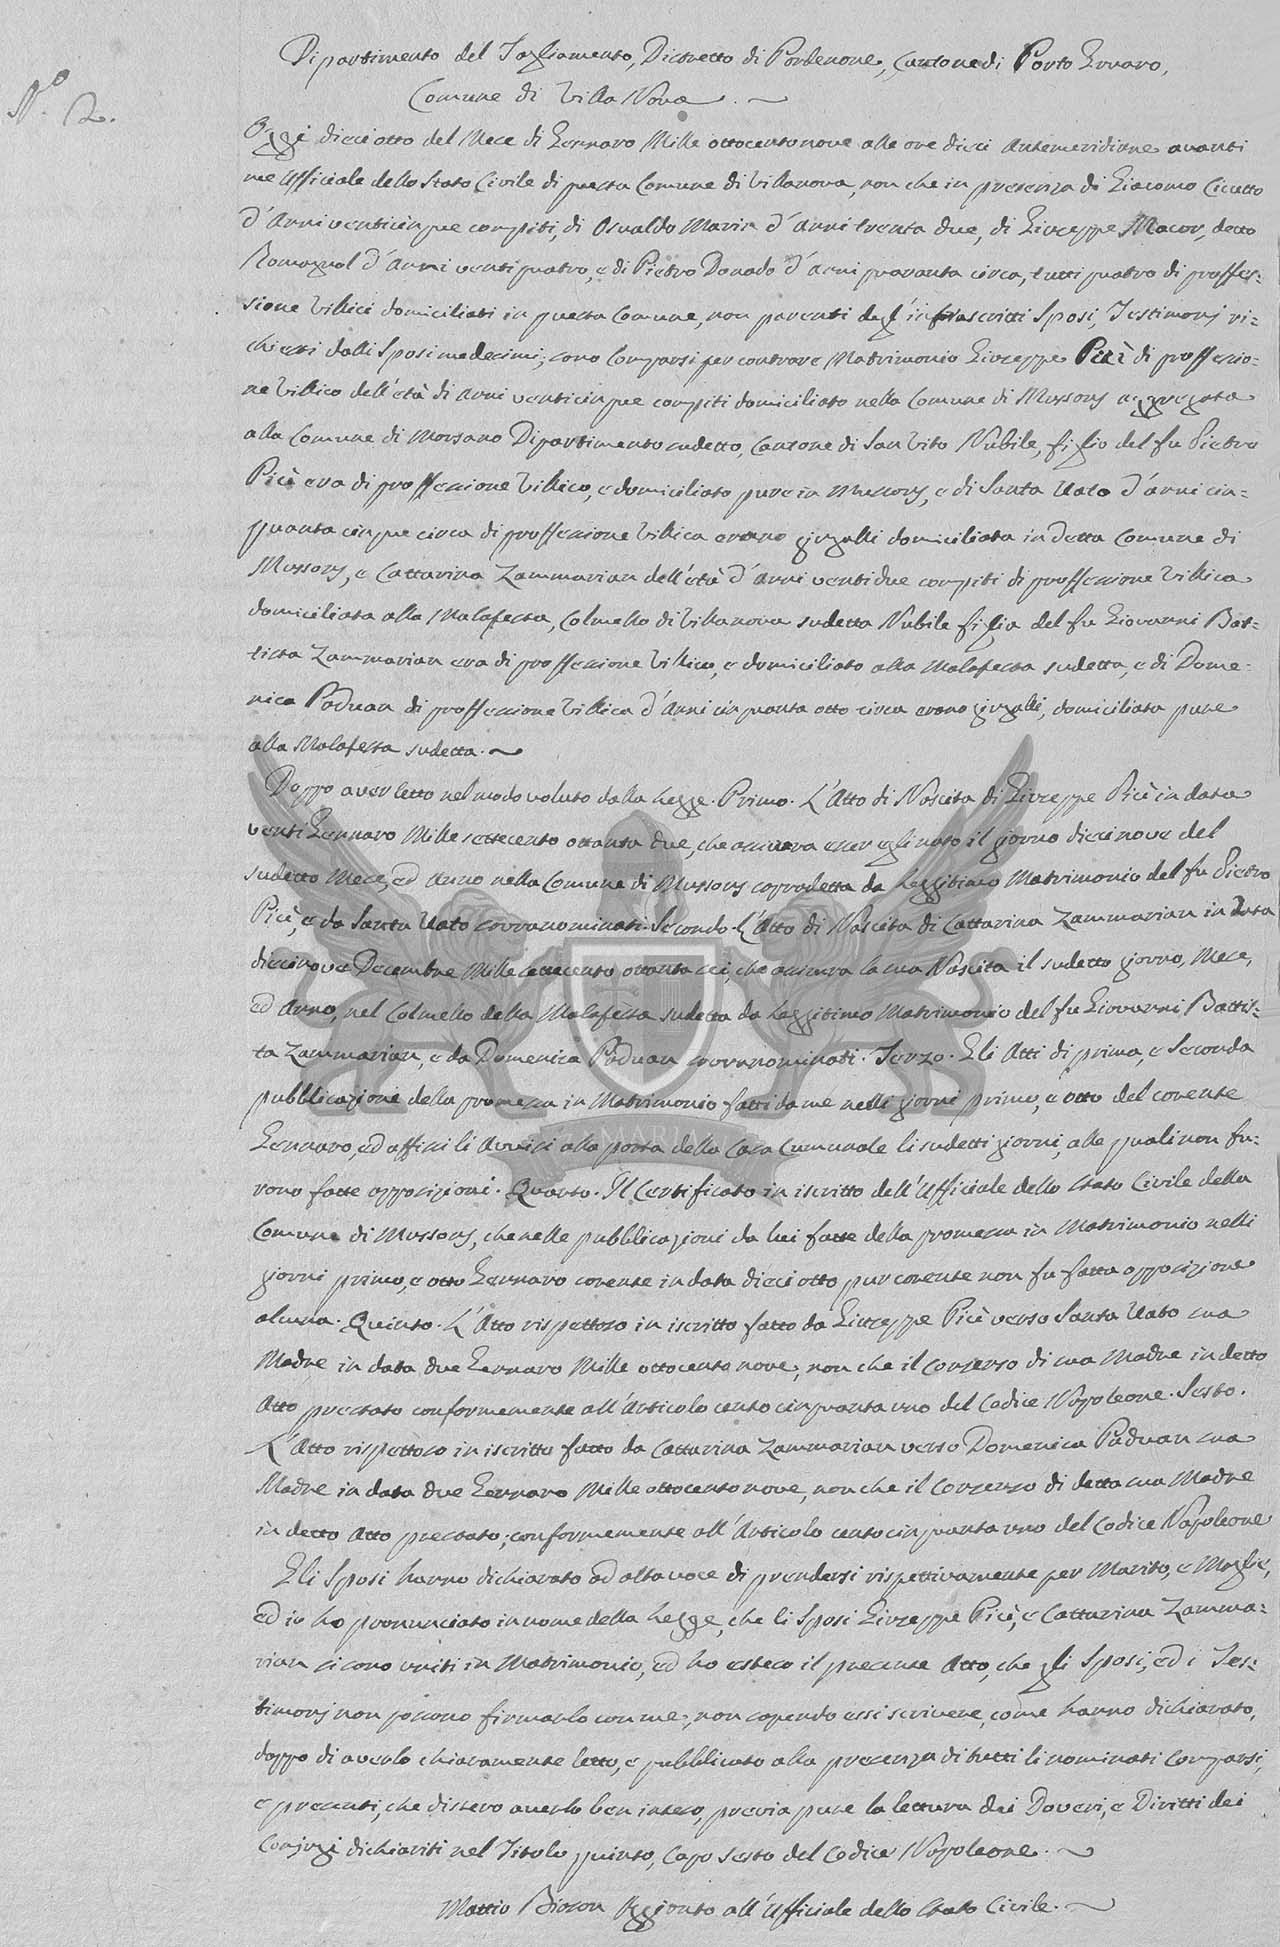 Dipartimento del Tagliamento, Distretto di Pordenone, Cantone di Porto Gruaro,
Comune di Villa Nova.
N.º 2.
Oggi dieciotto del Mese di Gennaro Mille ottocento nove alle ore dieci Antemeridiane avanti
me Ufficiale dello Stato Civile di questa Comune di Villanova, non che in presenza di Giacomo Cicutto
d'Anni venticinque compiti, di Osvaldo Marin d'Anni trenta due, di Giuseppe Macor, detto
Romagnol d'Anni venti quatro, e di Pietro Donado d'Anni quaranta circa, tutti quatro di profes=
sione Villici domiciliati in questa Comune, non parenti degl'infrascritti Sposi, Testimonj ri=
chiesti dalli Sposi medesimi; sono Comparsi per contrare Matrimonio Giuseppe Picì di professio=
ne Villico dell'età di Anni venticinque compiti domiciliato nella Comune di Mussons aggregata
alla Comune di Morsano Dipartimento sudetto, Cantone di San Vito Nubile, figlio del fu Pietro
Picì era di professione Villico, e domiciliato pure in Mussons, e di Santa Uato d'anni cin=
quanta cinque circa di professione Villica erano giugalli domiciliata in detta Comune di
Mussons, e Cattarina Zammarian dell'età d'Anni ventidue compiti di professione Villica
domiciliata alla Malafesta, Colmello di Villanova sudetta Nubile figlia del fu Giovanni Bat=
tista Zammarian era di professione Villico, e domiciliato alla Malafesta sudetta, e di Dome=
nica Paduan di professione Villica d'Anni cinquanta otto circa erano giugalli, domiciliata pure
alla Malafesta sudetta.
Doppo aver letto nel modo voluto dalla Legge. Primo. L'Atto di Nascita di Giuseppe Picì in data
venti Gennaro Mille settecento ottanta due, che assicura esser egli nato il giorno diecinove del
sudetto Mese, ed Anno nella Comune di Mussons sopradetta da Leggitimo Matrimonio del fu Pietro
Picì, e da Santa Uato sovranominati. Secondo. L'Atto di Nascita di Cattarina Zammarian in data
diecinove Decembre Mille settecento ottanta sei, che assicura la sua Nascita il sudetto giorno, Mese,
ed Anno, nel Colmello della Malafesta sudetta da Leggitimo Matrimonio del fu Giovanni Battis=
ta Zammarian, e da Domenica Paduan sovranominati. Terzo. Gli Atti di prima, e seconda
pubblicazione della promessa in Matrimonio fatti da me nelli giorni primo, e otto del corente
Gennaro, ed affissi li Avvisi alla porta della Casa Comunale li sudetti giorni, alle quali non fu=
rono fatte opposizioni. Quarto. Il Certificato in iscritto dell'Ufficiale dello Stato Civile della
Comune di Mussons, che nelle pubblicazioni da lui fatte della promessa in Matrimonio nelli
giorni primo, e otto Gennaro corente in data dieci otto pur corente non fu fatta opposizione
alcuna. Quinto. L'Atto rispettoso in iscritto fatto da Giuseppe Picì verso Santa Uato sua
Madre in data due Gennaro Mille ottocento nove, non che il Consenso di sua Madre in detto
Atto prestato conformemente all'Articolo cento cinquanta uno del Codice Napoleone. Sesto.
L'Atto rispettoso in iscritto fatto da Cattarina Zammarian verso Domenica Paduan sua
Madre in data due Gennaro Mille ottocento nove, non che il Consenso di detta sua Madre
in detto Atto prestato; conformemente all'Articolo cento cinquanta uno del Codice Napoleone
Gli Sposi hanno dichiarato ad alta voce di prendersi rispettivamente per Marito, e Moglie,
ed io ho pronunciato in nome della Legge, che li Sposi Giuseppe Picì, e Cattarina Zamma=
rian si sono uniti in Matrimonio, ed ho esteso il presente Atto, che gli Sposi, ed i Tes=
timonj non possono firmarlo con me, non sapendo essi scrivere, come hanno dichiarato,
doppo di averlo chiaramente letto, e pubblicato alla presenza di tutti li nominati Comparsi,
e presenti, che dissero averlo ben inteso, previa pure la lettura dei Doveri, e Diritti dei
Conjugi dichiariti nel Titolo quinto, Capo Sesto del Codice Napoleone.
Mattio Bioson Aggionto all'Ufficiale dello Stato Civile.